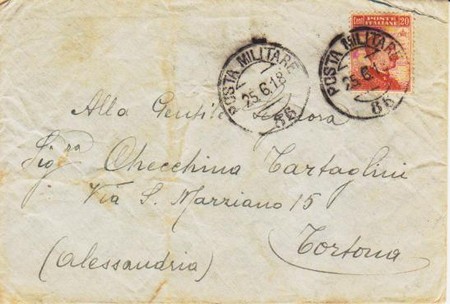 POSTE ITALIANE
20
POSTA MILITARE
25.6.18
66
POSTA MILITARE
25.6.18
66
Alla Gentile Signora
Sig.ra Checchina Tartaglini
Via S. Marziano 15
Tortona
(Alessandria)